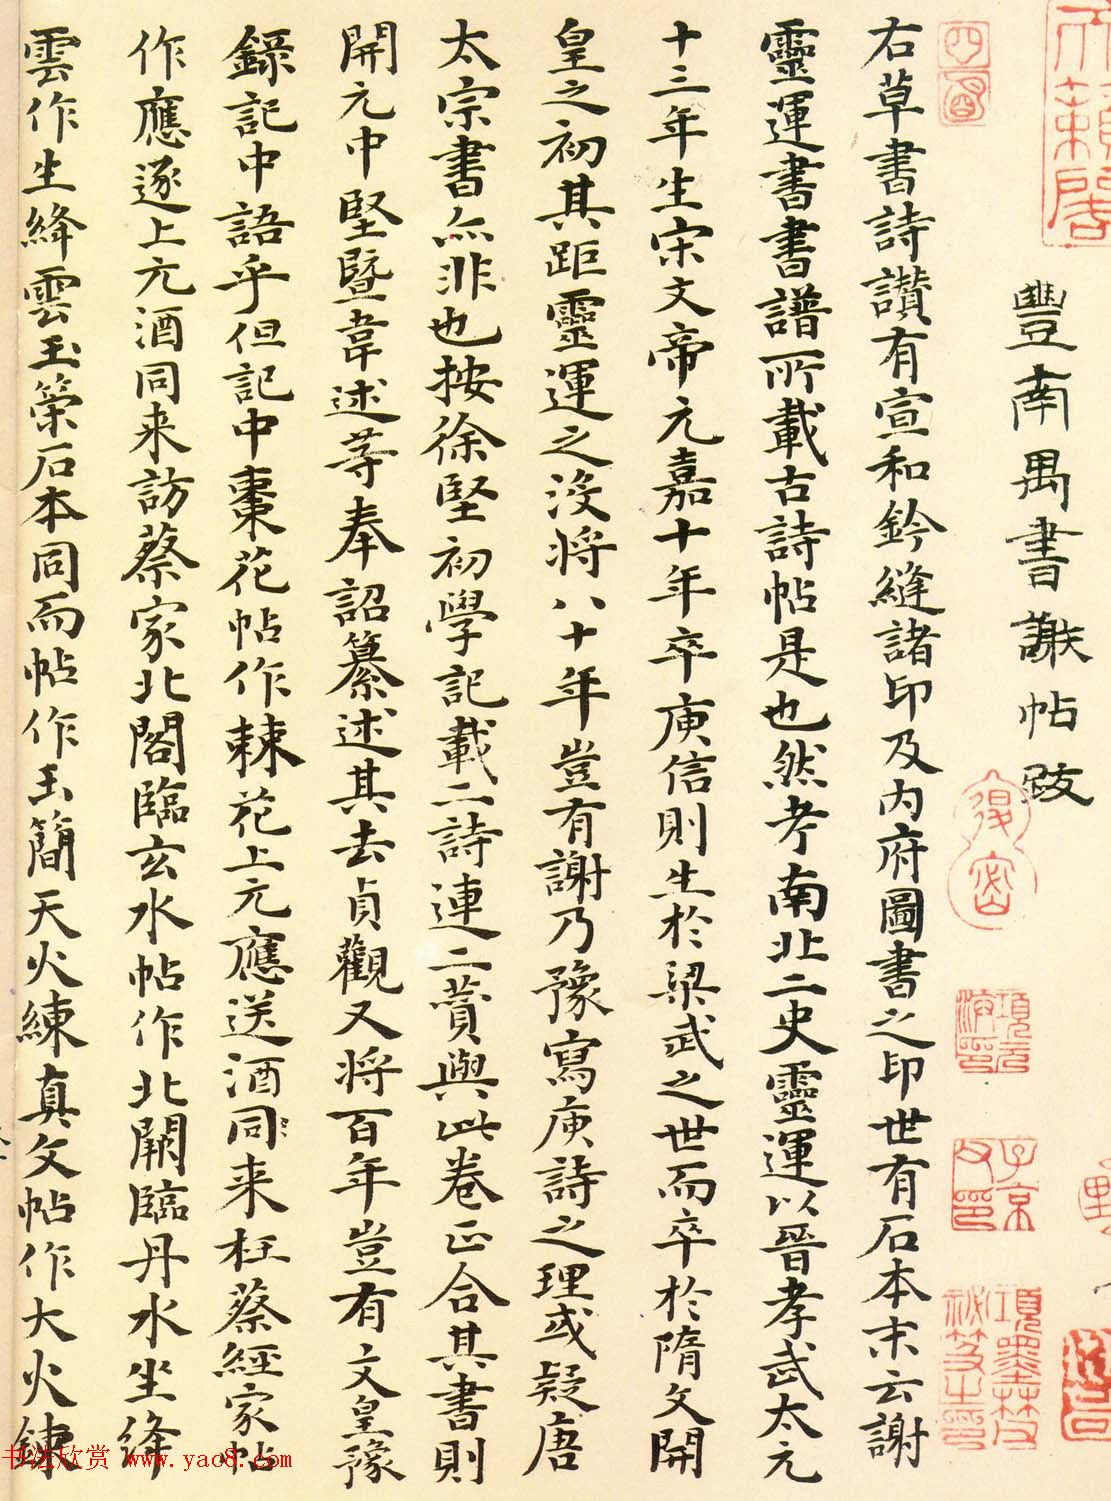 豐南禺書謝帖跋
右草書詩讚有宣和鈐縫諸印及内府圖書之印世有石本末云謝
靈運書書譜所載古詩帖是也然考南北二史靈運以晉孝武太元
十三年生宋文帝元嘉十年卒庾信則生於梁武之世而卒於隋文開
皇之初其距靈運之沒將八十年豈有謝乃豫寫庾詩之理或疑唐
太宗書亦非也按徐堅初學記載二詩連二贊與此卷正合其書則
開元中堅暨韋述等奉詔纂述其去貞觀又將百年豈有文皇豫
錄記中語乎但記中棗花帖作棘花上元應送酒同来枉蔡經家帖
作應逐上元酒同来訪蔡家北閣臨玄水帖作北闕臨丹水坐絳
雲作生絳雲玉策石本同而帖作玉簡天火練真文帖作大火鍊
天籟閣
四
項元汴印
子京父印
項墨林父祕笈之印
书法欣赏 www.yac8.com